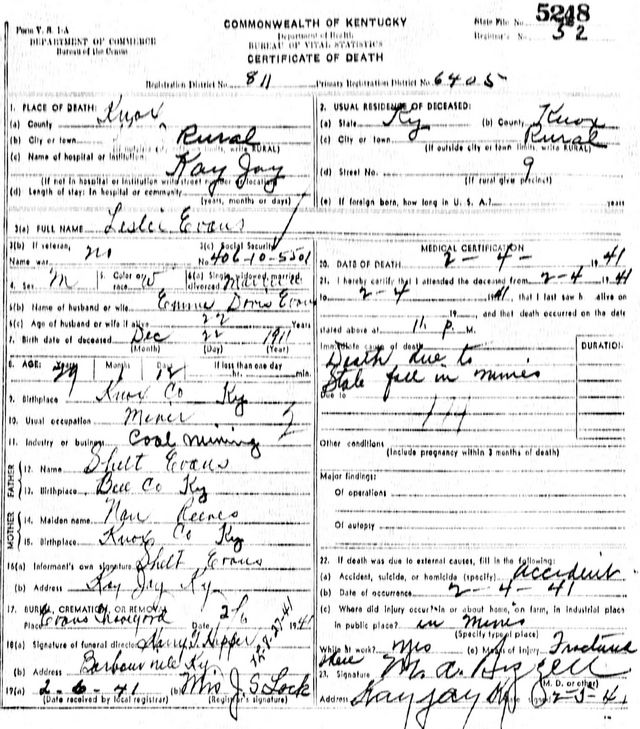 Form V. S. 1-A
DEPARTMENT OF COMMERCE
Bureau of the Census
COMMONWEALTH OF KENTUCKY
Department of Health
BUREAU OF VITAL STATISTICS
CERTIFICATE OF DEATH
State File No. 5248
Registrar's No. 32
Registration District No. 811 Primary Registration District No. 6405
1. PLACE OF DEATH:
(a) County Knox
(b) City or town Rural
(c) Name of hospital or institution: Kay Jay
(If not in hospital or institution write street number or location)
(d) Length of stay: In hospital or community
(years, months or days)
2. USUAL RESIDENCE OF DECEASED:
(a) State Ky (b) County Knox
(c) City or town Rural
(If outside city or town limits, write RURAL)
(d) Street No. 9
(If rural give precinct)
(e) If foreign born, how long in U. S. A.? years
3(a) FULL NAME Leslie Evans
3(b) If veteran, Name war no 3(c) Social Security No. 406-10-5501
4. Sex M 5. Color or race W 6(a) Single, widowed, married, divorced Married
6(b) Name of husband or wife Emma Doris Evans
6(c) Age of husband or wife if alive 22 Years
7. Birth date of deceased Dec 22 1911
(Month) (Day) (Year)
8. AGE: Years Months Days If less than one day
29 1 12 hr. min.
9. Birthplace Knox Co Ky
10. Usual occupation Miner
11. Industry or business Coal Mining
FATHER
12. Name Shelt Evans
13. Birthplace Bell Co Ky
MOTHER
14. Maiden name Nan Reeves
15. Birthplace Knox Co Ky
16(a) Informant's own signature Shelt Evans
(b) Address Kay Jay Ky
17. BURIAL, CREMATION, OR REMOVAL
Place Evans Graveyard Date 2/6 1941
18(a) Signature of funeral director Harry T. Hipper
(b) Address Barbourville Ky
19(a) 2-6-41 (b) Mrs J. S. Lock
(Date received by local registrar) (Registrar's signature)
MEDICAL CERTIFICATION
20. DATE OF DEATH 2-4- 1941
21. I hereby certify that I attended the deceased from 2-4 1941
to 2-4 1941, that I last saw h alive on
19 , and that death occurred on the date
stated above at 11 P. M.
Immediate cause of death DURATION
Death due to
Slate fall in mines
Due to
Other conditions
(Include pregnancy within 3 months of death)
Major findings:
Of operations
Of autopsy
22. If death was due to external causes, fill in the following:
(a) Accident, suicide, or homicide (specify) Accident
(b) Date of occurrence 2-4-41
(c) Where did injury occur? in or about home, on farm, in industrial place
in public place? in Mines
(Specify type of place)
While at work? yes (e) Means of injury Fracture
23. Signature
(M. D. or other)
Address Kay Jay Ky Date signed 2-5-41